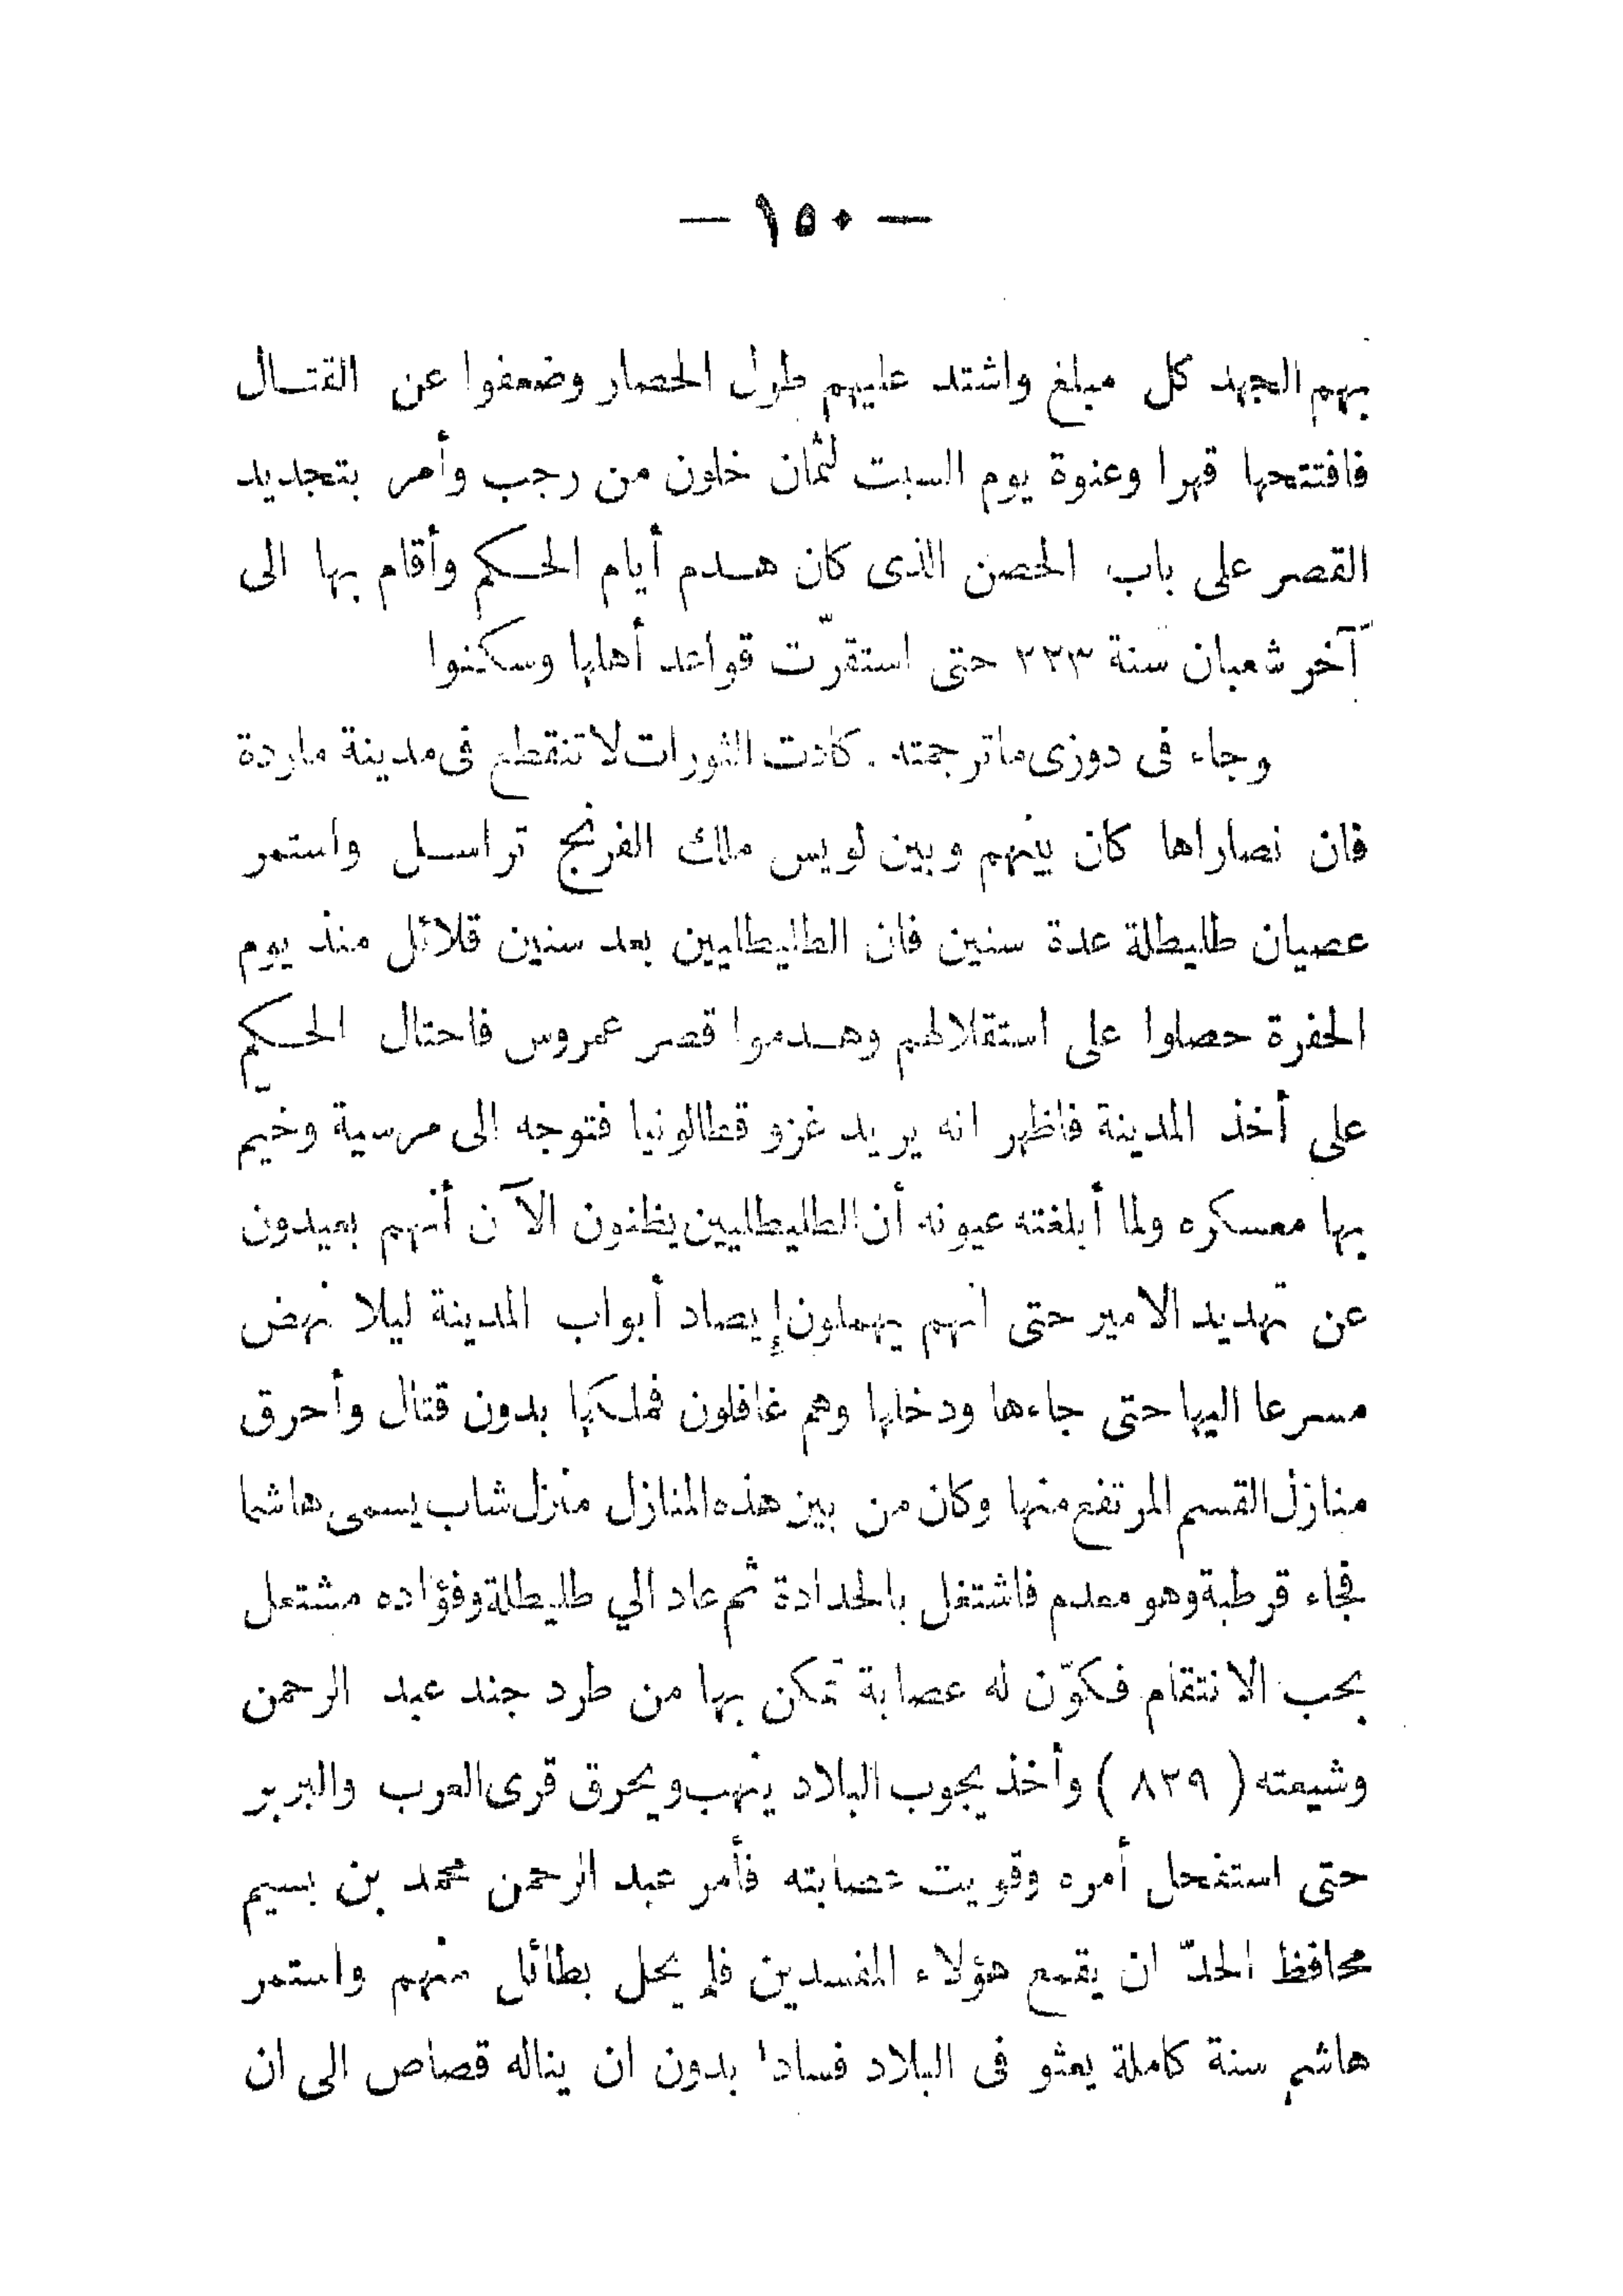 — ١٥٠ —
بهم الجهد كل مبلغ واشتد عليهم طول الحصار وضعفوا عن القتــال
فافتتحها قهرا وعنوة يوم السبت لثمان خلون من رجب وأمر بتجديد
القصر على باب الحصن الذى كان هــدم أيام الحــكم وأقام بها الى
آخر شعبان سنة ٢٢٣ حتى استقرّت قواعد أهلها وسكنوا
وجاء فى دوزى ماترجمته . كادت الثورات لا تنقطع فى مدينة ماردة
فان نصاراها كان بينهم وبين لويس ملك الفرنج تراســل واستمر
عصيان طليطلة عدة سنين فان الطليطليين بعد سنين قلائل منذ يوم
الحفرة حصلوا على استقلالهم وهــدموا قصر عمروس فاحتال الحــكم
على أخذ المدينة فاظهر انه يريد غزو قطالونيا فتوجه الى مرسية وخيم
بها معسكره ولما أبلغته عيونه أن الطليطليين يظنون الآن أنهم بعيدون
عن تهديد الامير حتى انهم يهملون إيصاد أبواب المدينة ليلا نهض
مسرعا اليها حتى جاءها ودخلها وهم غافلون فملكها بدون قتال وأحرق
منازل القسم المرتفع منها وكان من بين هذه المنازل منزل شاب يسمى هاشما
فجاء قرطبة وهو معدم فاشتغل بالحدادة ثم عاد الي طليطلة وفؤاده مشتعل
بحب الانتقام فكوّن له عصابة تمكن بها من طرد جند عبد الرحمن
وشيعته ( ٨٢٩ ) وأخذ يجوب البلاد ينهب ويحرق قرى العرب والبربر
حتى استفحل أمره وقويت عصابته فأمر عبد الرحمن محمد بن بسيم
محافظ الحدّ ان يقمع هؤلاء المفسدين فلم يحل بطائل منهم واستمر
هاشم سنة كاملة يعثو فى البلاد فسادا بدون ان يناله قصاص الى ان